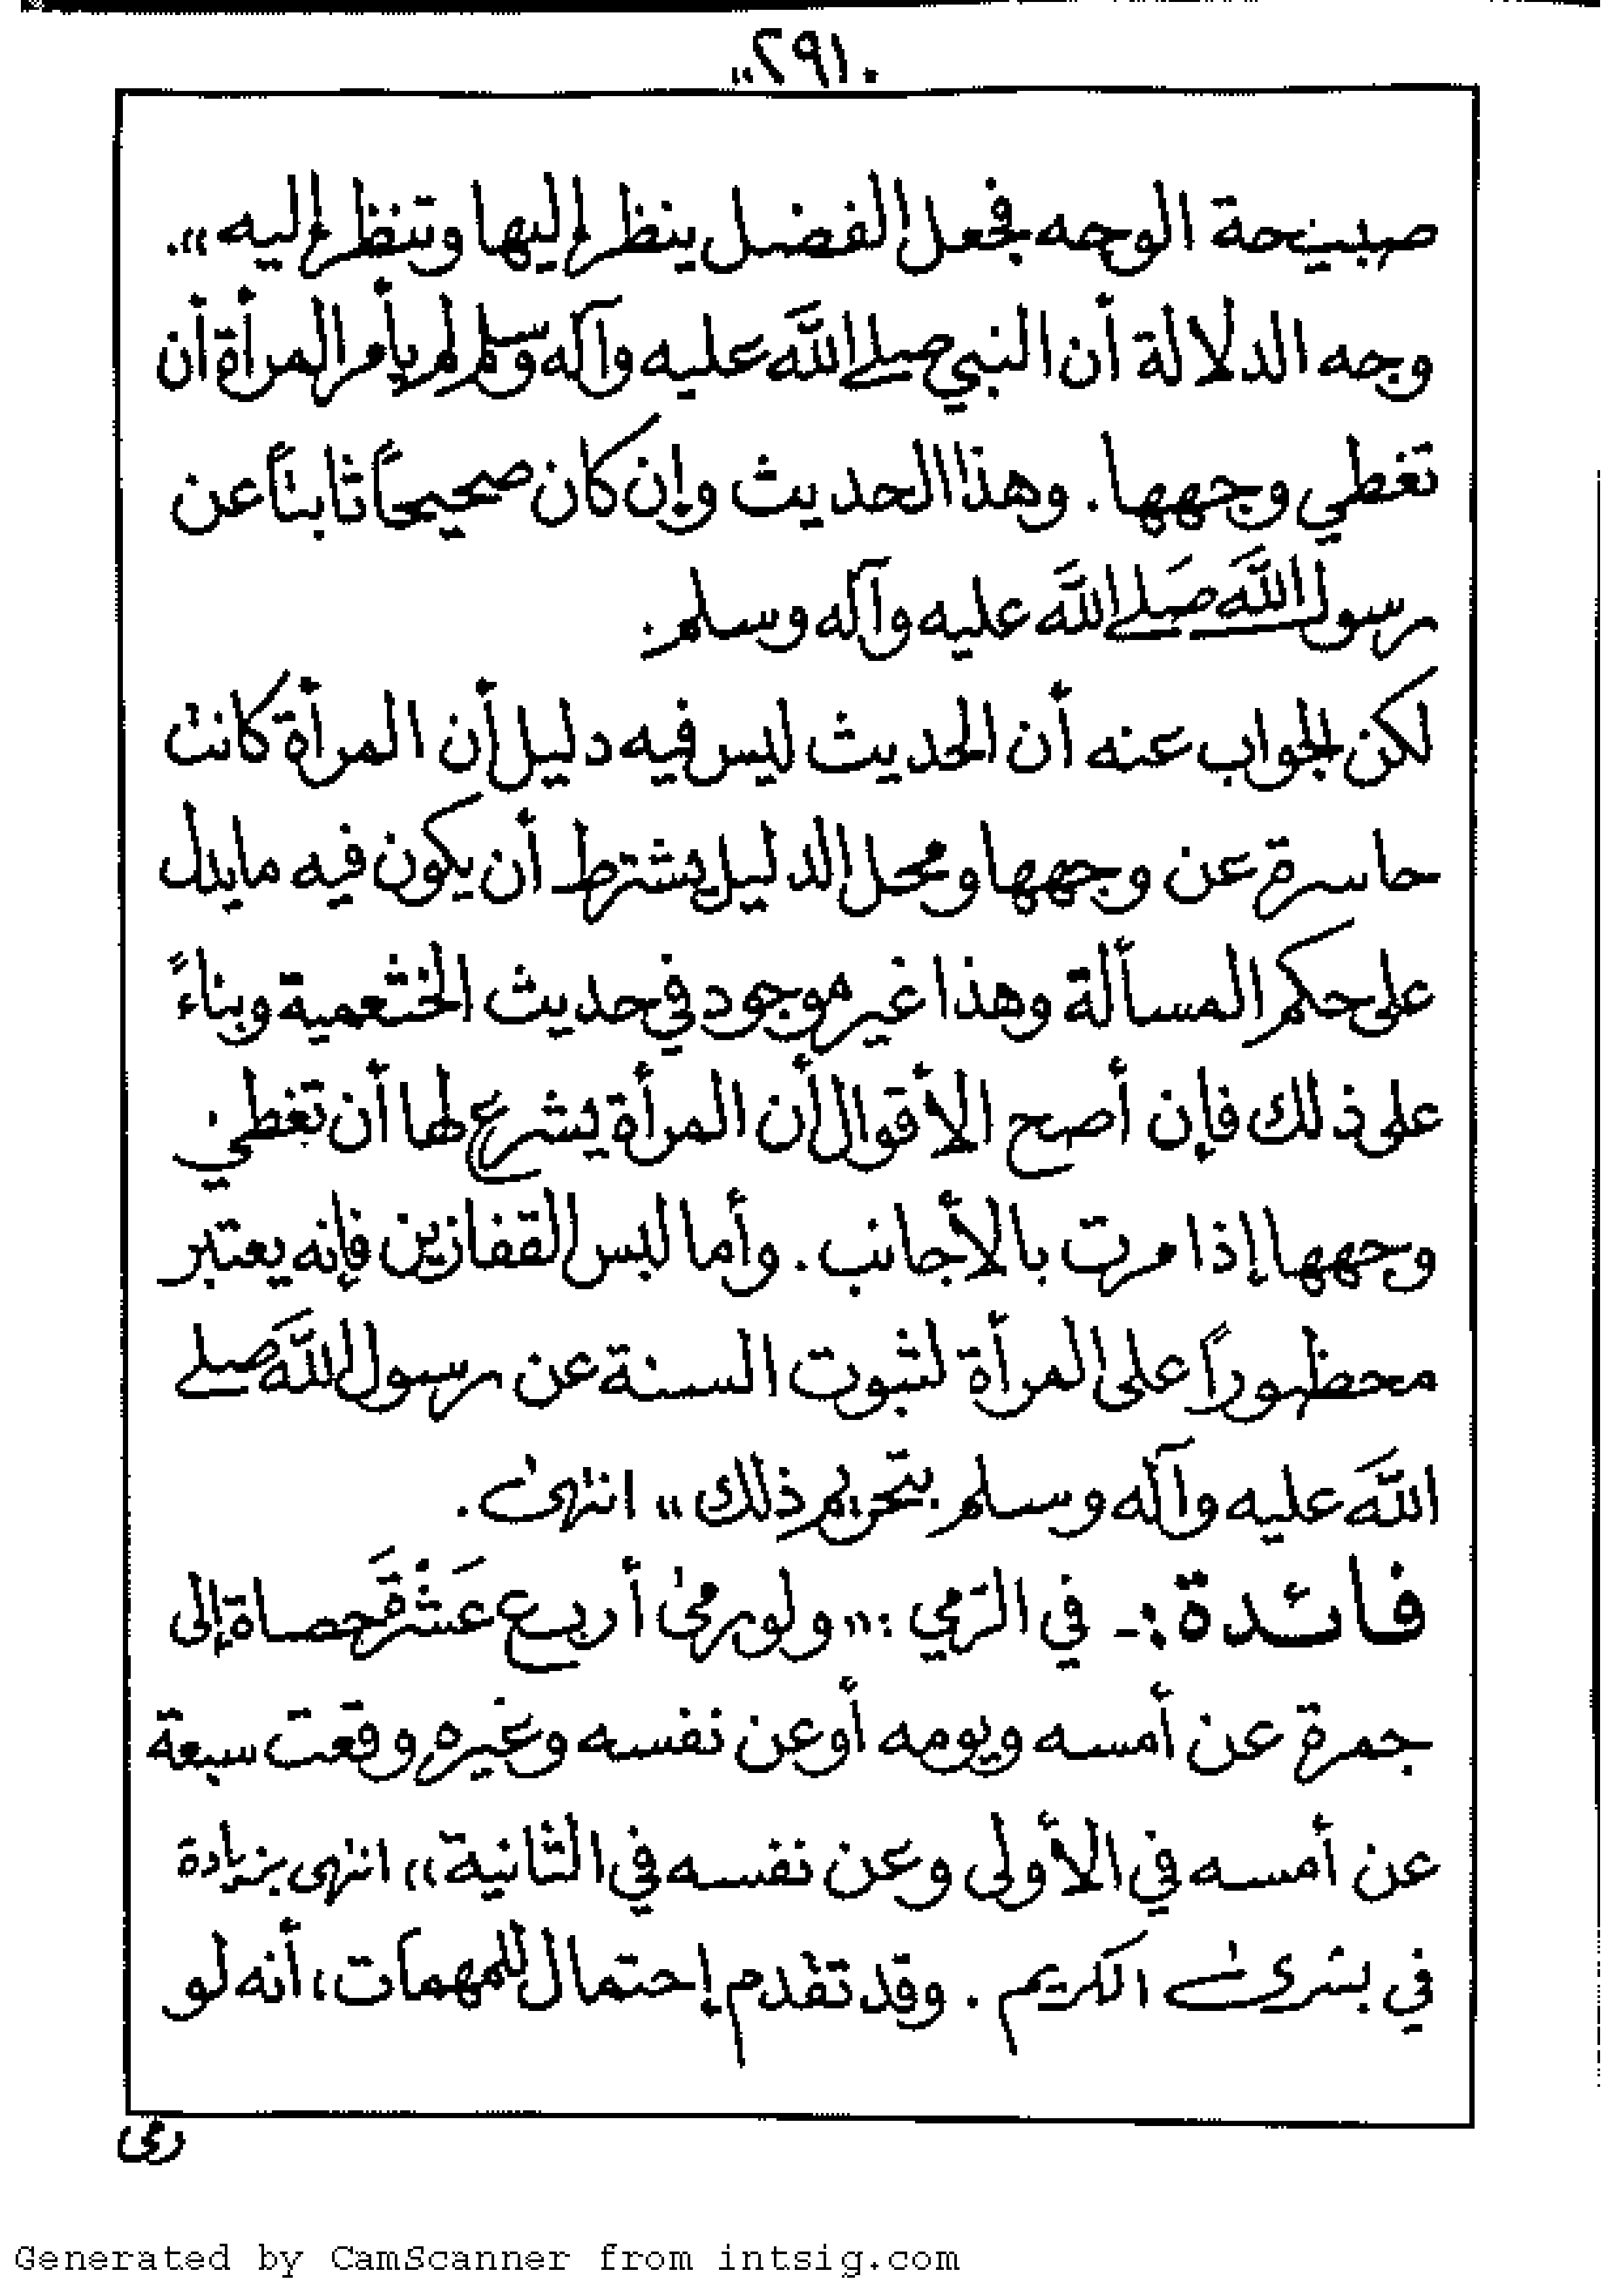 ٢٩١
صبيحة الوجه فجعل الفضل ينظر إليها وتنظر إليه».
وجه الدلالة أن النبي صلى الله عليه وآله وسلم لم يأمر المرأة أن
تغطي وجهها. وهذا الحديث وإن كان صحيحاً ثابتاً عن
رسول الله صلى الله عليه وآله وسلم.
لكن الجواب عنه أن الحديث ليس فيه دليل أن المرأة كانت
حاسرة عن وجهها ومحل الدليل يشترط أن يكون فيه ما يدل
على حكم المسألة وهذا غير موجود في حديث الخثعمية وبناءً
على ذلك فإن أصح الأقوال أن المرأة يشرع لها أن تغطي
وجهها إذا مرت بالأجانب. وأما لبس القفازين فإنه يعتبر
محظوراً على المرأة لثبوت السنة عن رسول الله صلى
الله عليه وآله وسلم بتحريم ذلك» انتهى.
فائدة:- في الرَمي: «ولو رمى أربع عَشْرَةَ حصاة إلى
جمرة عن أمسه ويومه أو عن نفسه وغيره وقعت سبعة
عن أمسه في الأولى وعن نفسه في الثانية» انتهى بزيادة
في بشرى الكريم. وقد تقدم إحتمال للمهمات، أنه لو
رمى
Generated by CamScanner from intsig.com